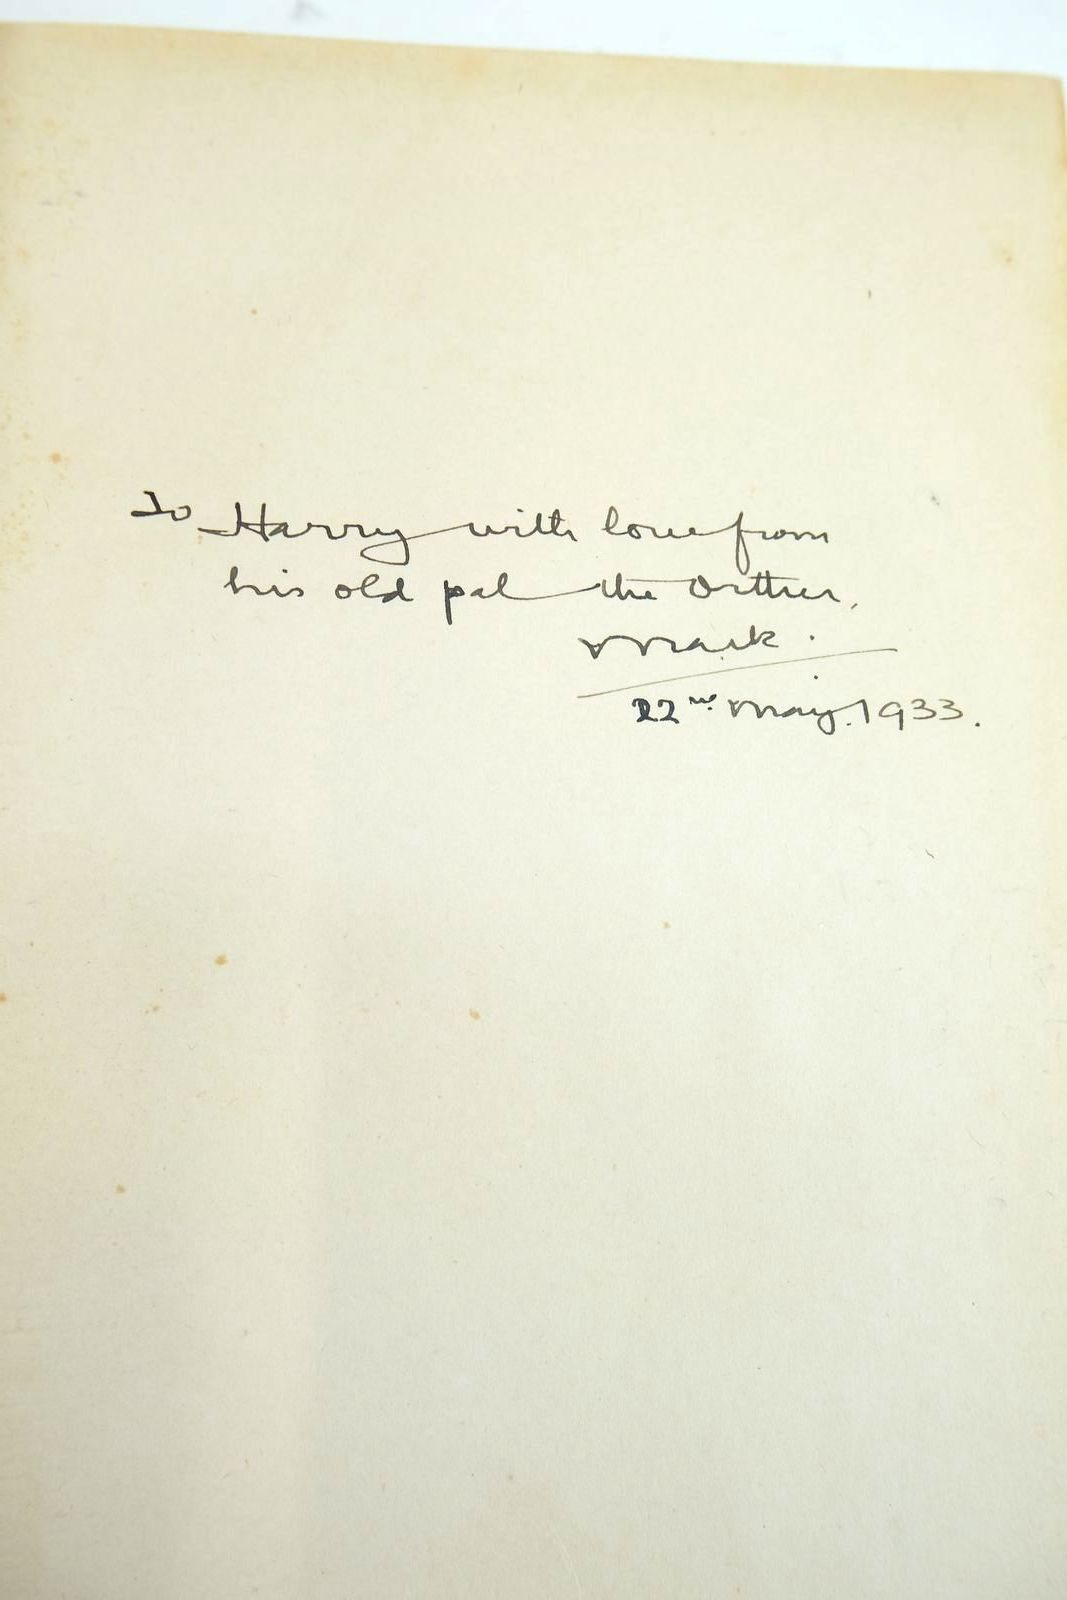 To Harry with love from
his old pal the Orther,
Mark.
22nd May. 1933.